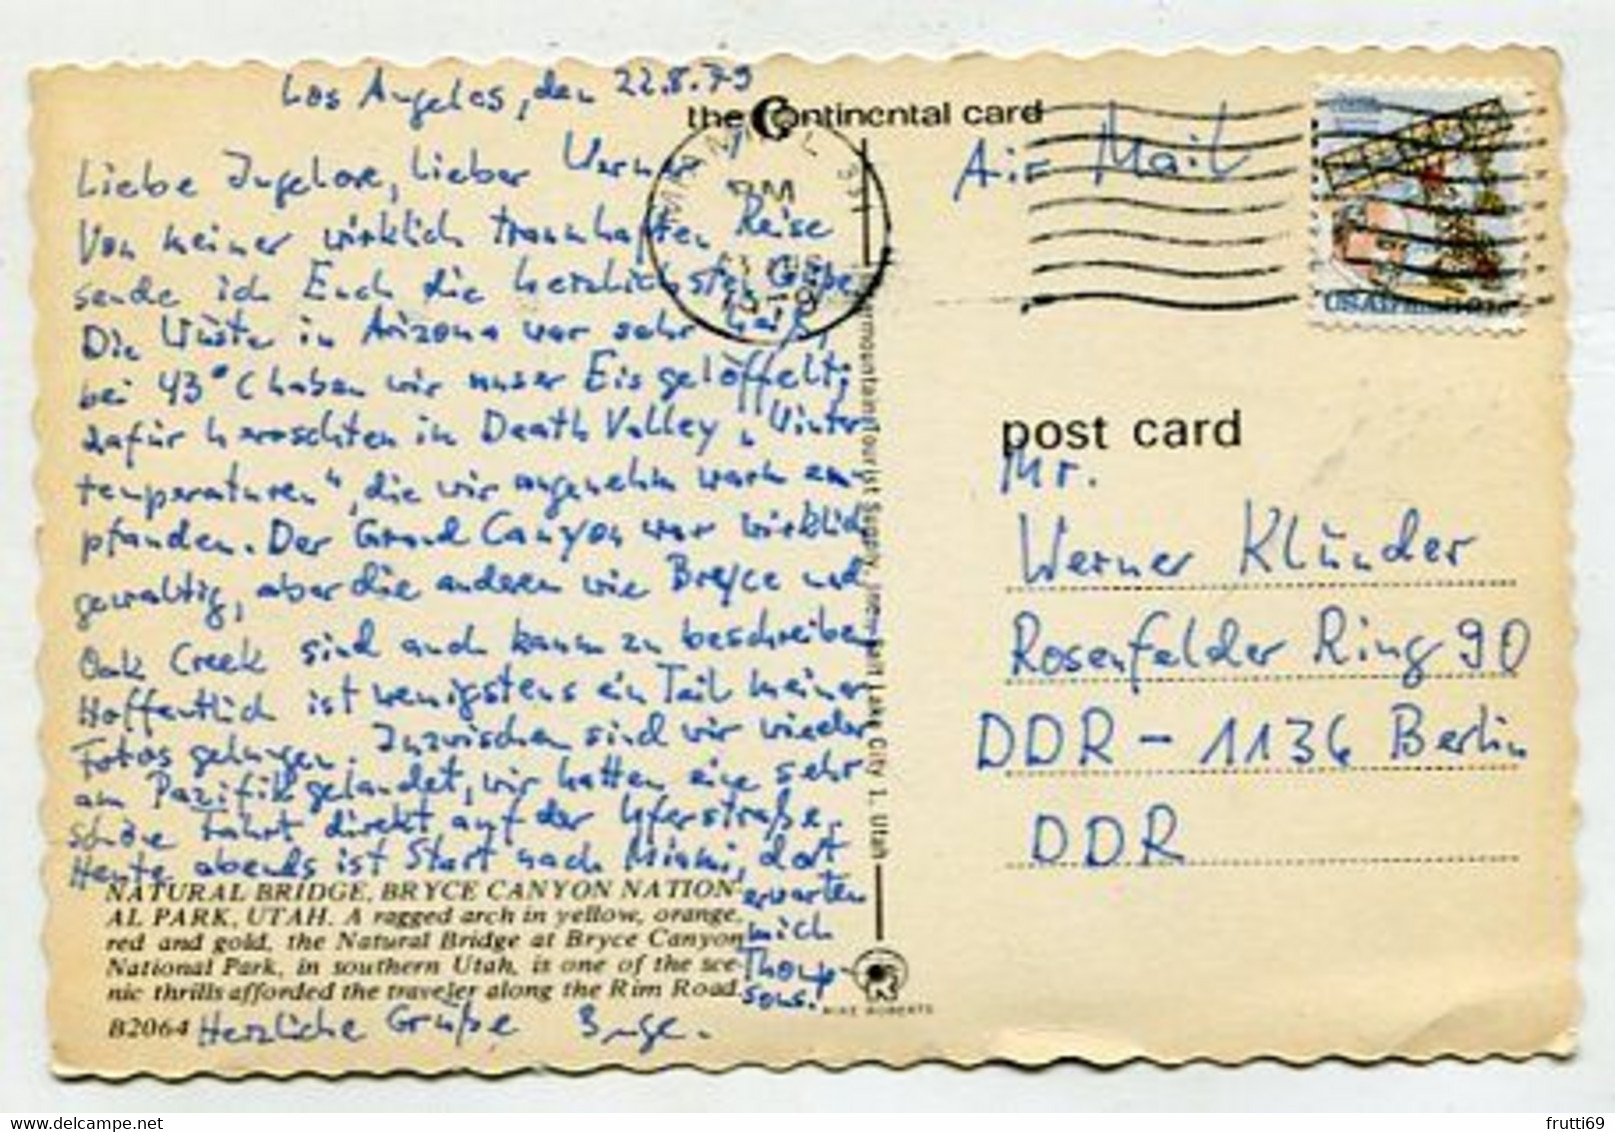 Los Angelos, den 22.8.79
the Continental card
Liebe Ingelore, lieber Werner
Von meiner wirklich traumhaften Reise
sende ich Euch die herzlichsten Grüße.
Die Wüste in Arizona war sehr heiß,
bei 43°C haben wir unser Eis gelöffelt;
dafür herrschten in Death Valley „Winter
temperaturen“, die wir angenehm warm em-
pfanden. Der Grand Canyon war wirklich
gewaltig, aber die anderen wie Breyce und
Oak Creek sind auch kaum zu beschreiben
Hoffentlich ist wenigstens ein Teil meiner
Fotos gelungen. Inzwischen sind wir wieder
am Pazifik gelandet, wir hatten eine sehr
schöne Fahrt direkt auf der Uferstraße.
Heute abends ist Start nach Miami, dort
erwarten
mich
Thomp-
sons!
Herzliche Grüße Inge.
NATURAL BRIDGE, BRYCE CANYON NATION-
AL PARK, UTAH. A ragged arch in yellow, orange,
red and gold, the Natural Bridge at Bryce Canyon
National Park, in southern Utah, is one of the sce-
nic thrills afforded the traveler along the Rim Road.
B2064
Intermountain Tourist Supply, Inc., Salt Lake City 1, Utah
MIKE ROBERTS
MIAMI, FL 331
PM
1979
Air Mail
USAirmail 31c
post card
Mr.
Werner Klünder
Rosenfelder Ring 90
DDR - 1136 Berlin
DDR
www.delcampe.net
frutti69